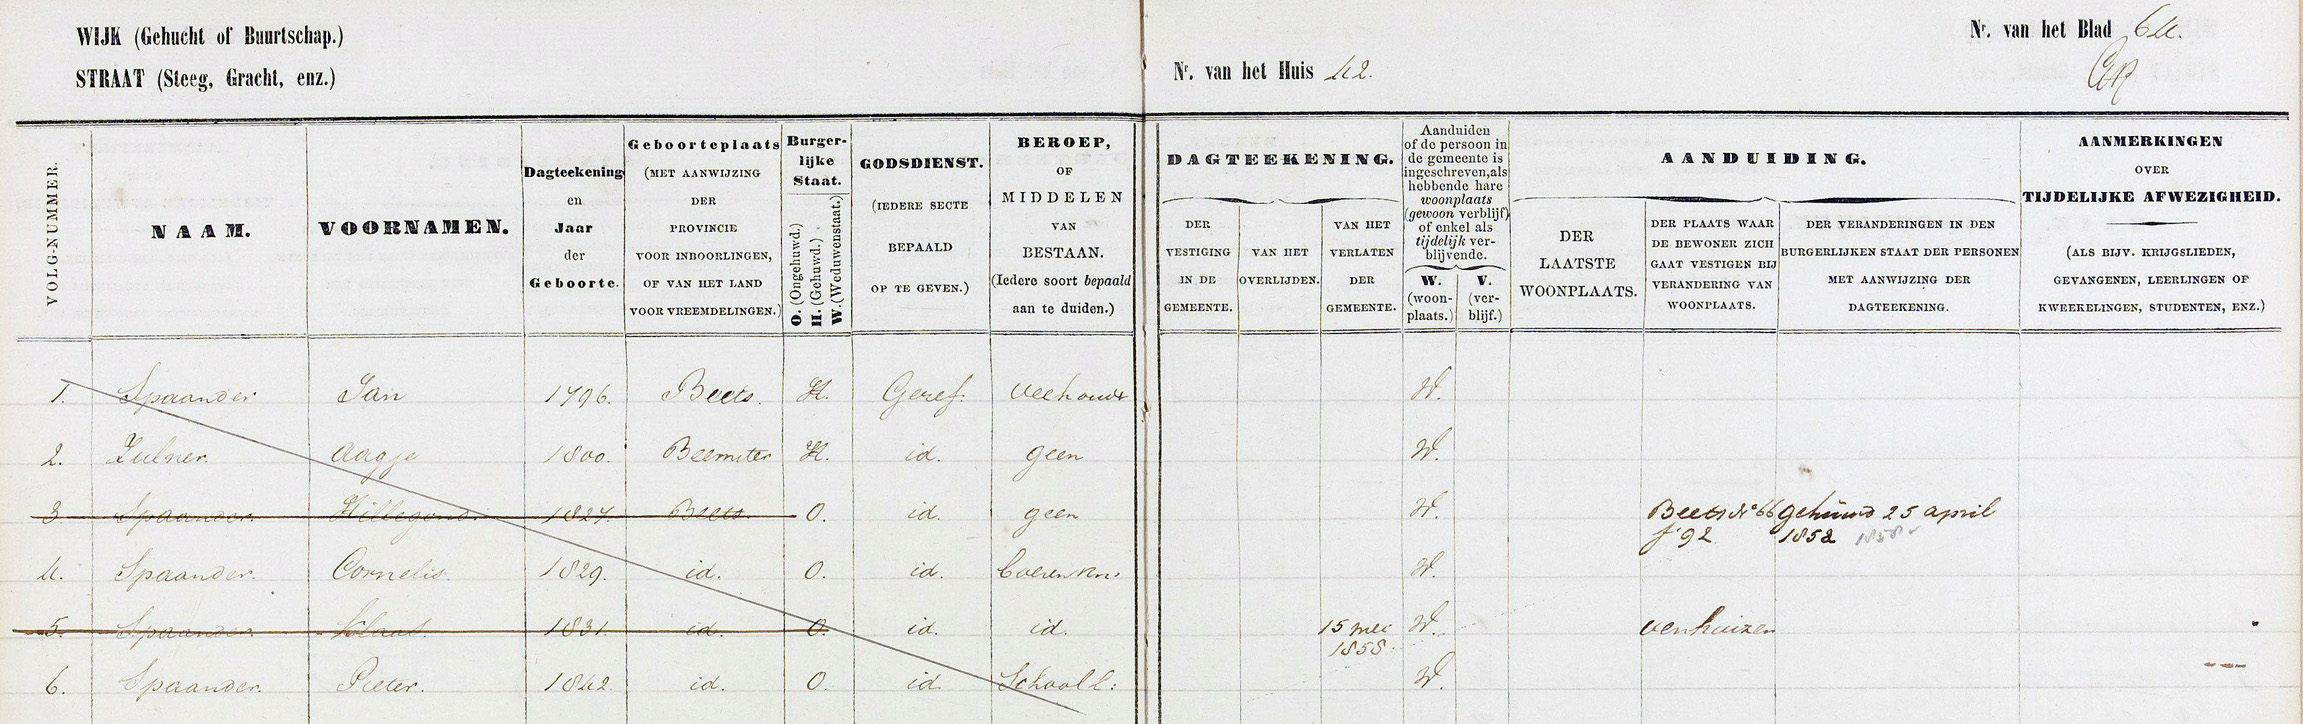 WIJK (Gehucht of Buurtschap.)
STRAAT (Steeg, Gracht, enz.)
Nr. van het Huis 42.
Nr. van het Blad 64.
VOLGNUMMER.
NAAM.
VOORNAMEN.
Dagteekening
en
Jaar
der
Geboorte.
Geboorteplaats
(MET AANWIJZING
DER
PROVINCIE
VOOR INBOORLINGEN,
OF VAN HET LAND
VOOR VREEMDELINGEN.)
Burger-
lijke
Staat.
O. (Ongehuwd.)
H. (Gehuwd.)
W. (Weduwenstaat.)
GODSDIENST.
(IEDERE SECTE
BEPAALD
OP TE GEVEN.)
BEROEP,
OF
MIDDELEN
VAN
BESTAAN.
(Iedere soort bepaald
aan te duiden.)
DAGTEEKENING.
DER
VESTIGING
IN DE
GEMEENTE.
VAN HET
OVERLIJDEN.
VAN HET
VERLATEN
DER
GEMEENTE.
Aanduiden
of de persoon in
de gemeente is
ingeschreven, als
hebbende hare
woonplaats
(gewoon verblijf)
of enkel als
tijdelijk ver-
blijvende.
W.
(woon-
plaats.)
V.
(ver-
blijf.)
AANDUIDING.
DER
LAATSTE
WOONPLAATS.
DER PLAATS WAAR
DE BEWONER ZICH
GAAT VESTIGEN BIJ
VERANDERING VAN
WOONPLAATS.
DER VERANDERINGEN IN DEN
BURGERLIJKEN STAAT DER PERSONEN
MET AANWIJZING DER
DAGTEEKENING.
AANMERKINGEN
OVER
TIJDELIJKE AFWEZIGHEID.
(ALS BIJV. KRIJGSLIEDEN,
GEVANGENEN, LEERLINGEN OF
KWEEKELINGEN, STUDENTEN, ENZ.)
1. Spaander Jan 1796. Beets. H. Geref. veehoudr W.
2. Zulner. Aagje 1800. Beemster H. id. geen W.
3 Spaander. Hillegond. 1827. Beets. O. id. geen W. Beets No 66 gehuwd 25 april
f 92 1852 1858
4. Spaander. Cornelis. 1829. id. O. id. boerenkn. W.
5. Spaander. Klaas. 1831. id. O. id. id. 15 mei W. venhuizen
1858
6. Spaander. Pieter. 1842. id. O. id School l: W.